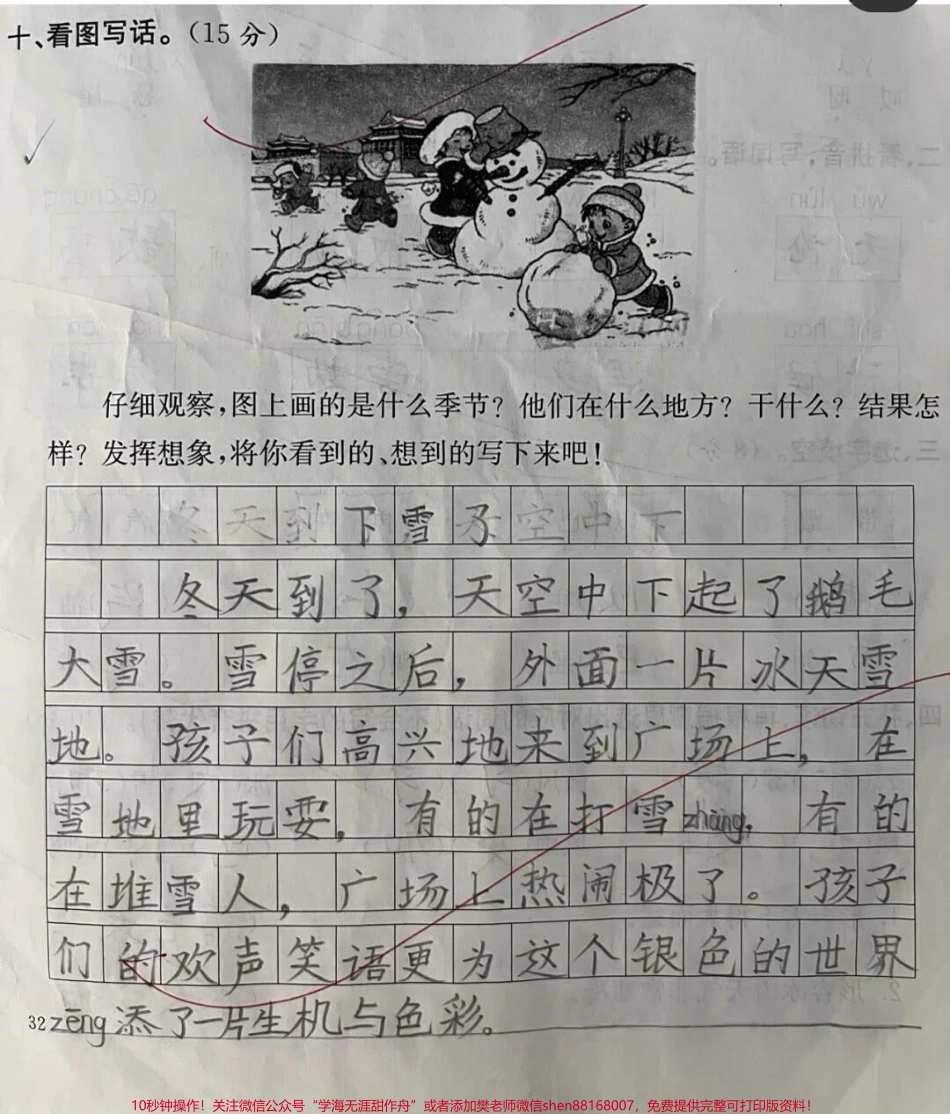 十、看图写话。(15分)
仔细观察,图上画的是什么季节?他们在什么地方?干什么?结果怎
样?发挥想象,将你看到的、想到的写下来吧!
冬天到下雪了空中下
冬天到了,天空中下起了鹅毛
大雪。雪停之后,外面一片冰天雪
地。孩子们高兴地来到广场上,在
雪地里玩耍,有的在打雪zhàng,有的
在堆雪人,广场上热闹极了。孩子
们的欢声笑语更为这个银色的世界
32 zēng添了一片生机与色彩。
10秒钟操作!关注微信公众号“学海无涯甜作舟”或者添加樊老师微信shen88168007,免费提供完整可打印版资料!